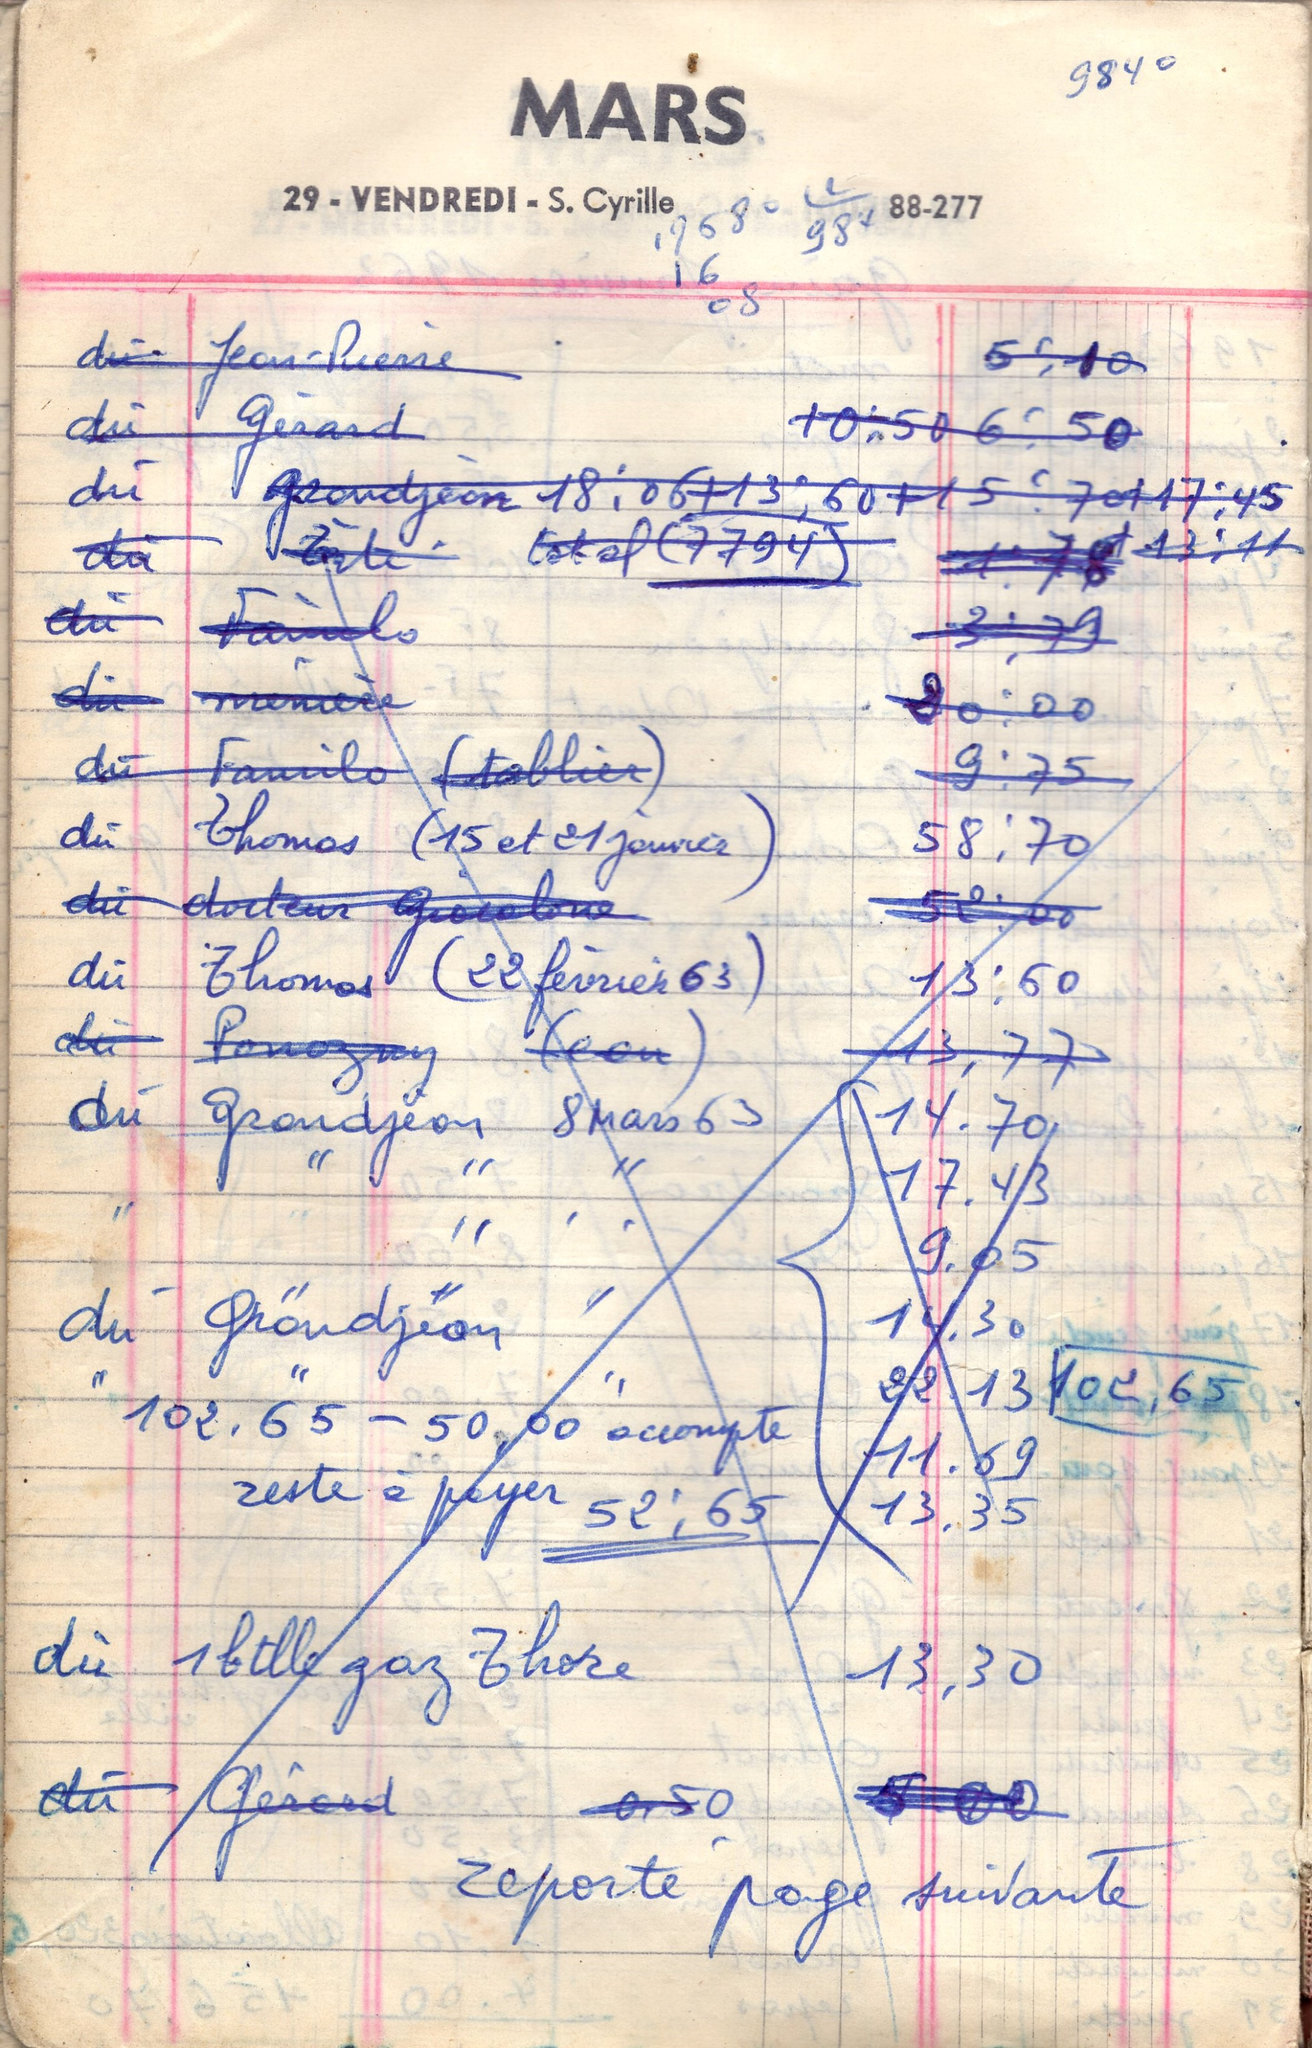 9840
MARS
29 - VENDREDI - S. Cyrille 88-277
1968° 984
16
08
dû Jean-Pierre 5:10
dû Gérard 10:50 6:50
dû Grandjèan 18:06+13:60+15:70+17:45
dû total (7794) 1:78 + 13:11
dû Familo 3:79
dû mémère 20:00
dû Familo (tablier) 9:75
dû Thomas (15 et 21 janvier) 58:70
dû docteur 52:00
dû Thomas (22 février 63) 13:60
dû (eau) 13,77
dû Grandjèan 8 Mars 63 14.70
" " " 17.43
" " " " 9.05
dû Grandjèan " 14.30
" " " 22.13 102,65
102.65 - 50,00 accompte 11.69
reste à payer 52:65 13.35
dû 1 btlle gaz Thore 13,30
dû Gérard 0.50 5 00
reporté page suivante